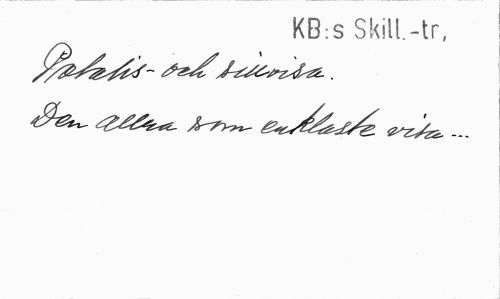 KB:s Skill.-tr,
Potatis- och sillvisa.
Den allra som enklaste visa ...